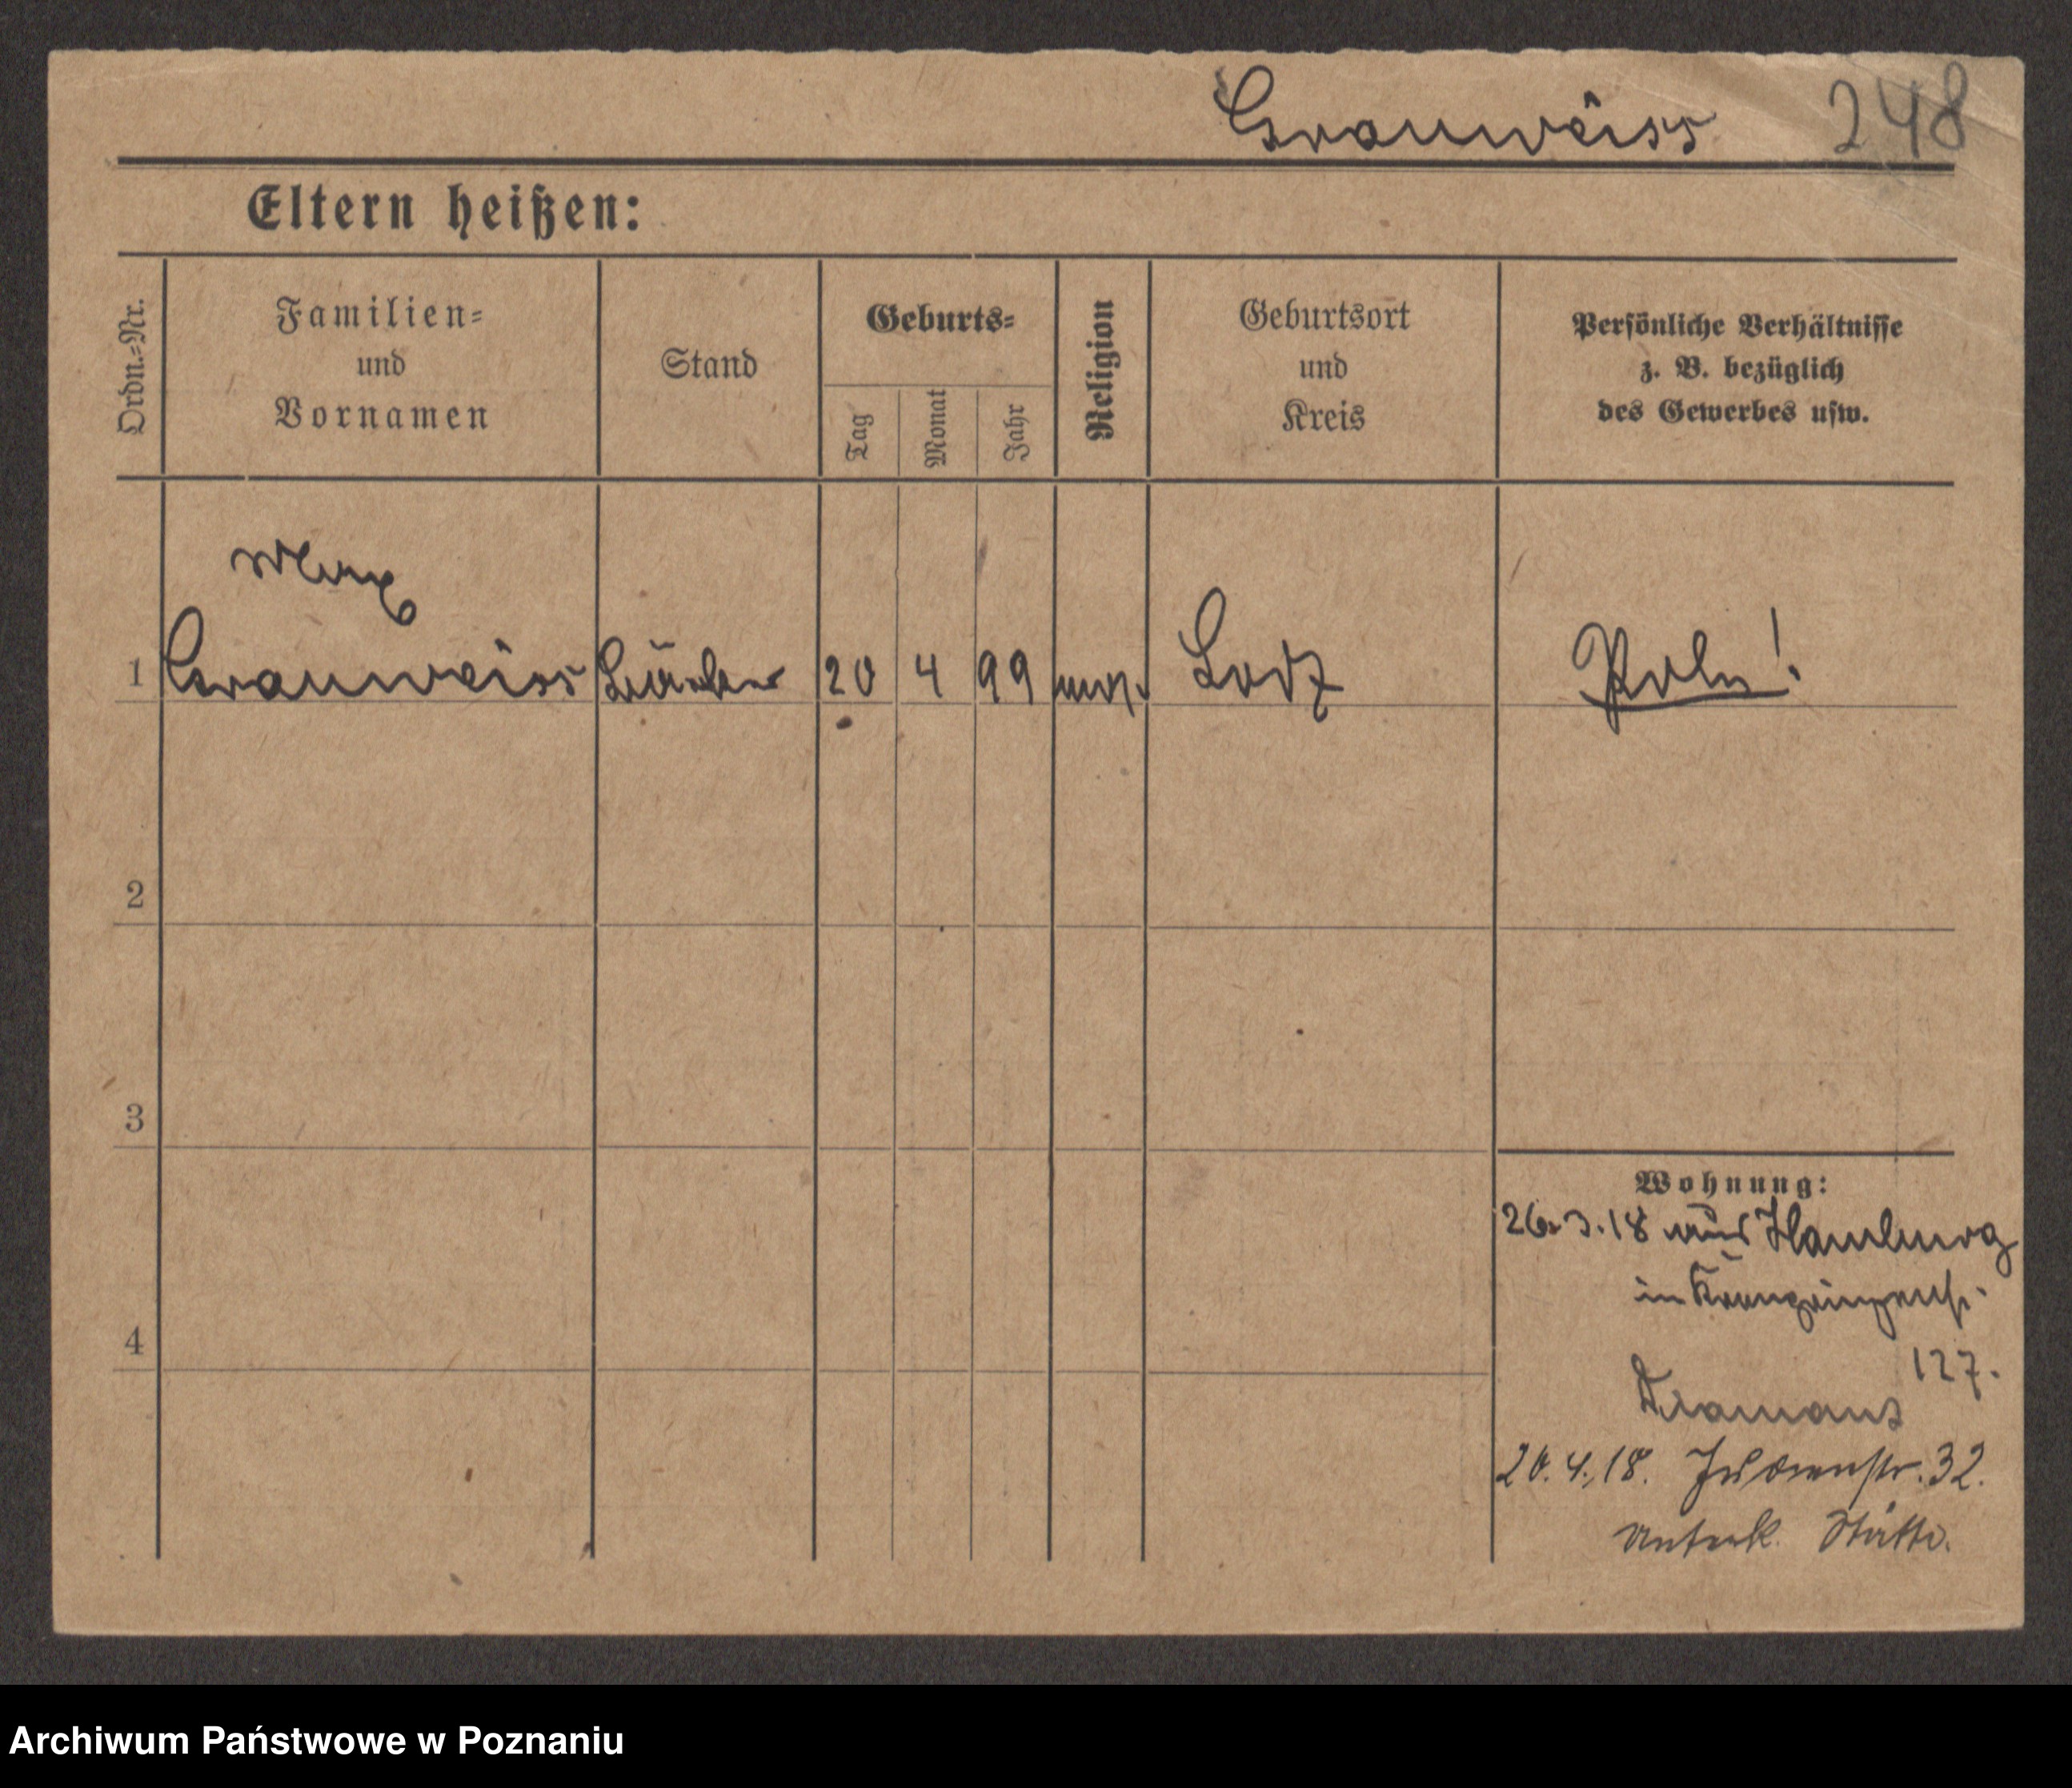 Grauweiss 248
Eltern heißen:
Ordn.=Nr.
Familien=
und
Vornamen
Stand
Geburts=
Tag
Monat
Jahr
Religion
Geburtsort
und
Kreis
Persönliche Verhältnisse
z. B. bezüglich
des Gewerbes usw.
Max
1 Grauweiss Bäcker 20 4 99 mos. Lodz Pole!
2
3
4
Wohnung:
26.3.18 aus Hamburg
in
127.
20.4.18. Judenstr. 32.
Unterk. Stätte.
Archiwum Państwowe w Poznaniu